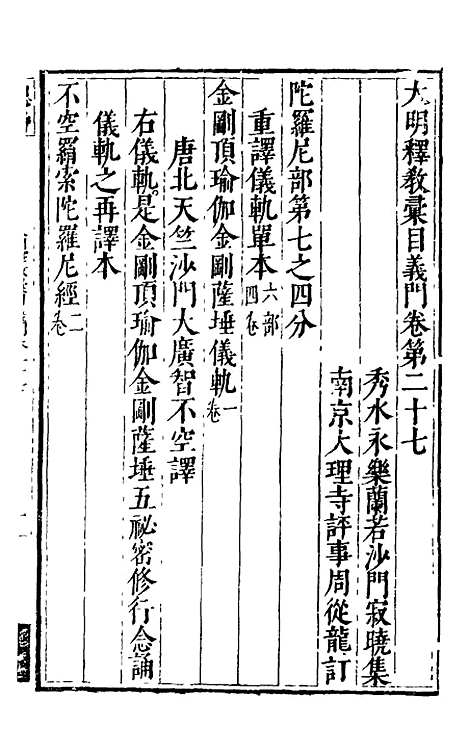 大明釋教彙目義門卷第二十七
秀水永樂蘭若沙門寂曉集
南京大理寺評事周從龍訂
陀羅尼部第七之四分
重譯儀軌單本六部四卷
金剛頂瑜伽金剛薩埵儀軌一卷
唐北天竺沙門大廣智不空譯
右儀軌是金剛頂瑜伽金剛薩埵五祕密修行念誦
儀軌之再譯本
不空羂索陀羅尼經二卷